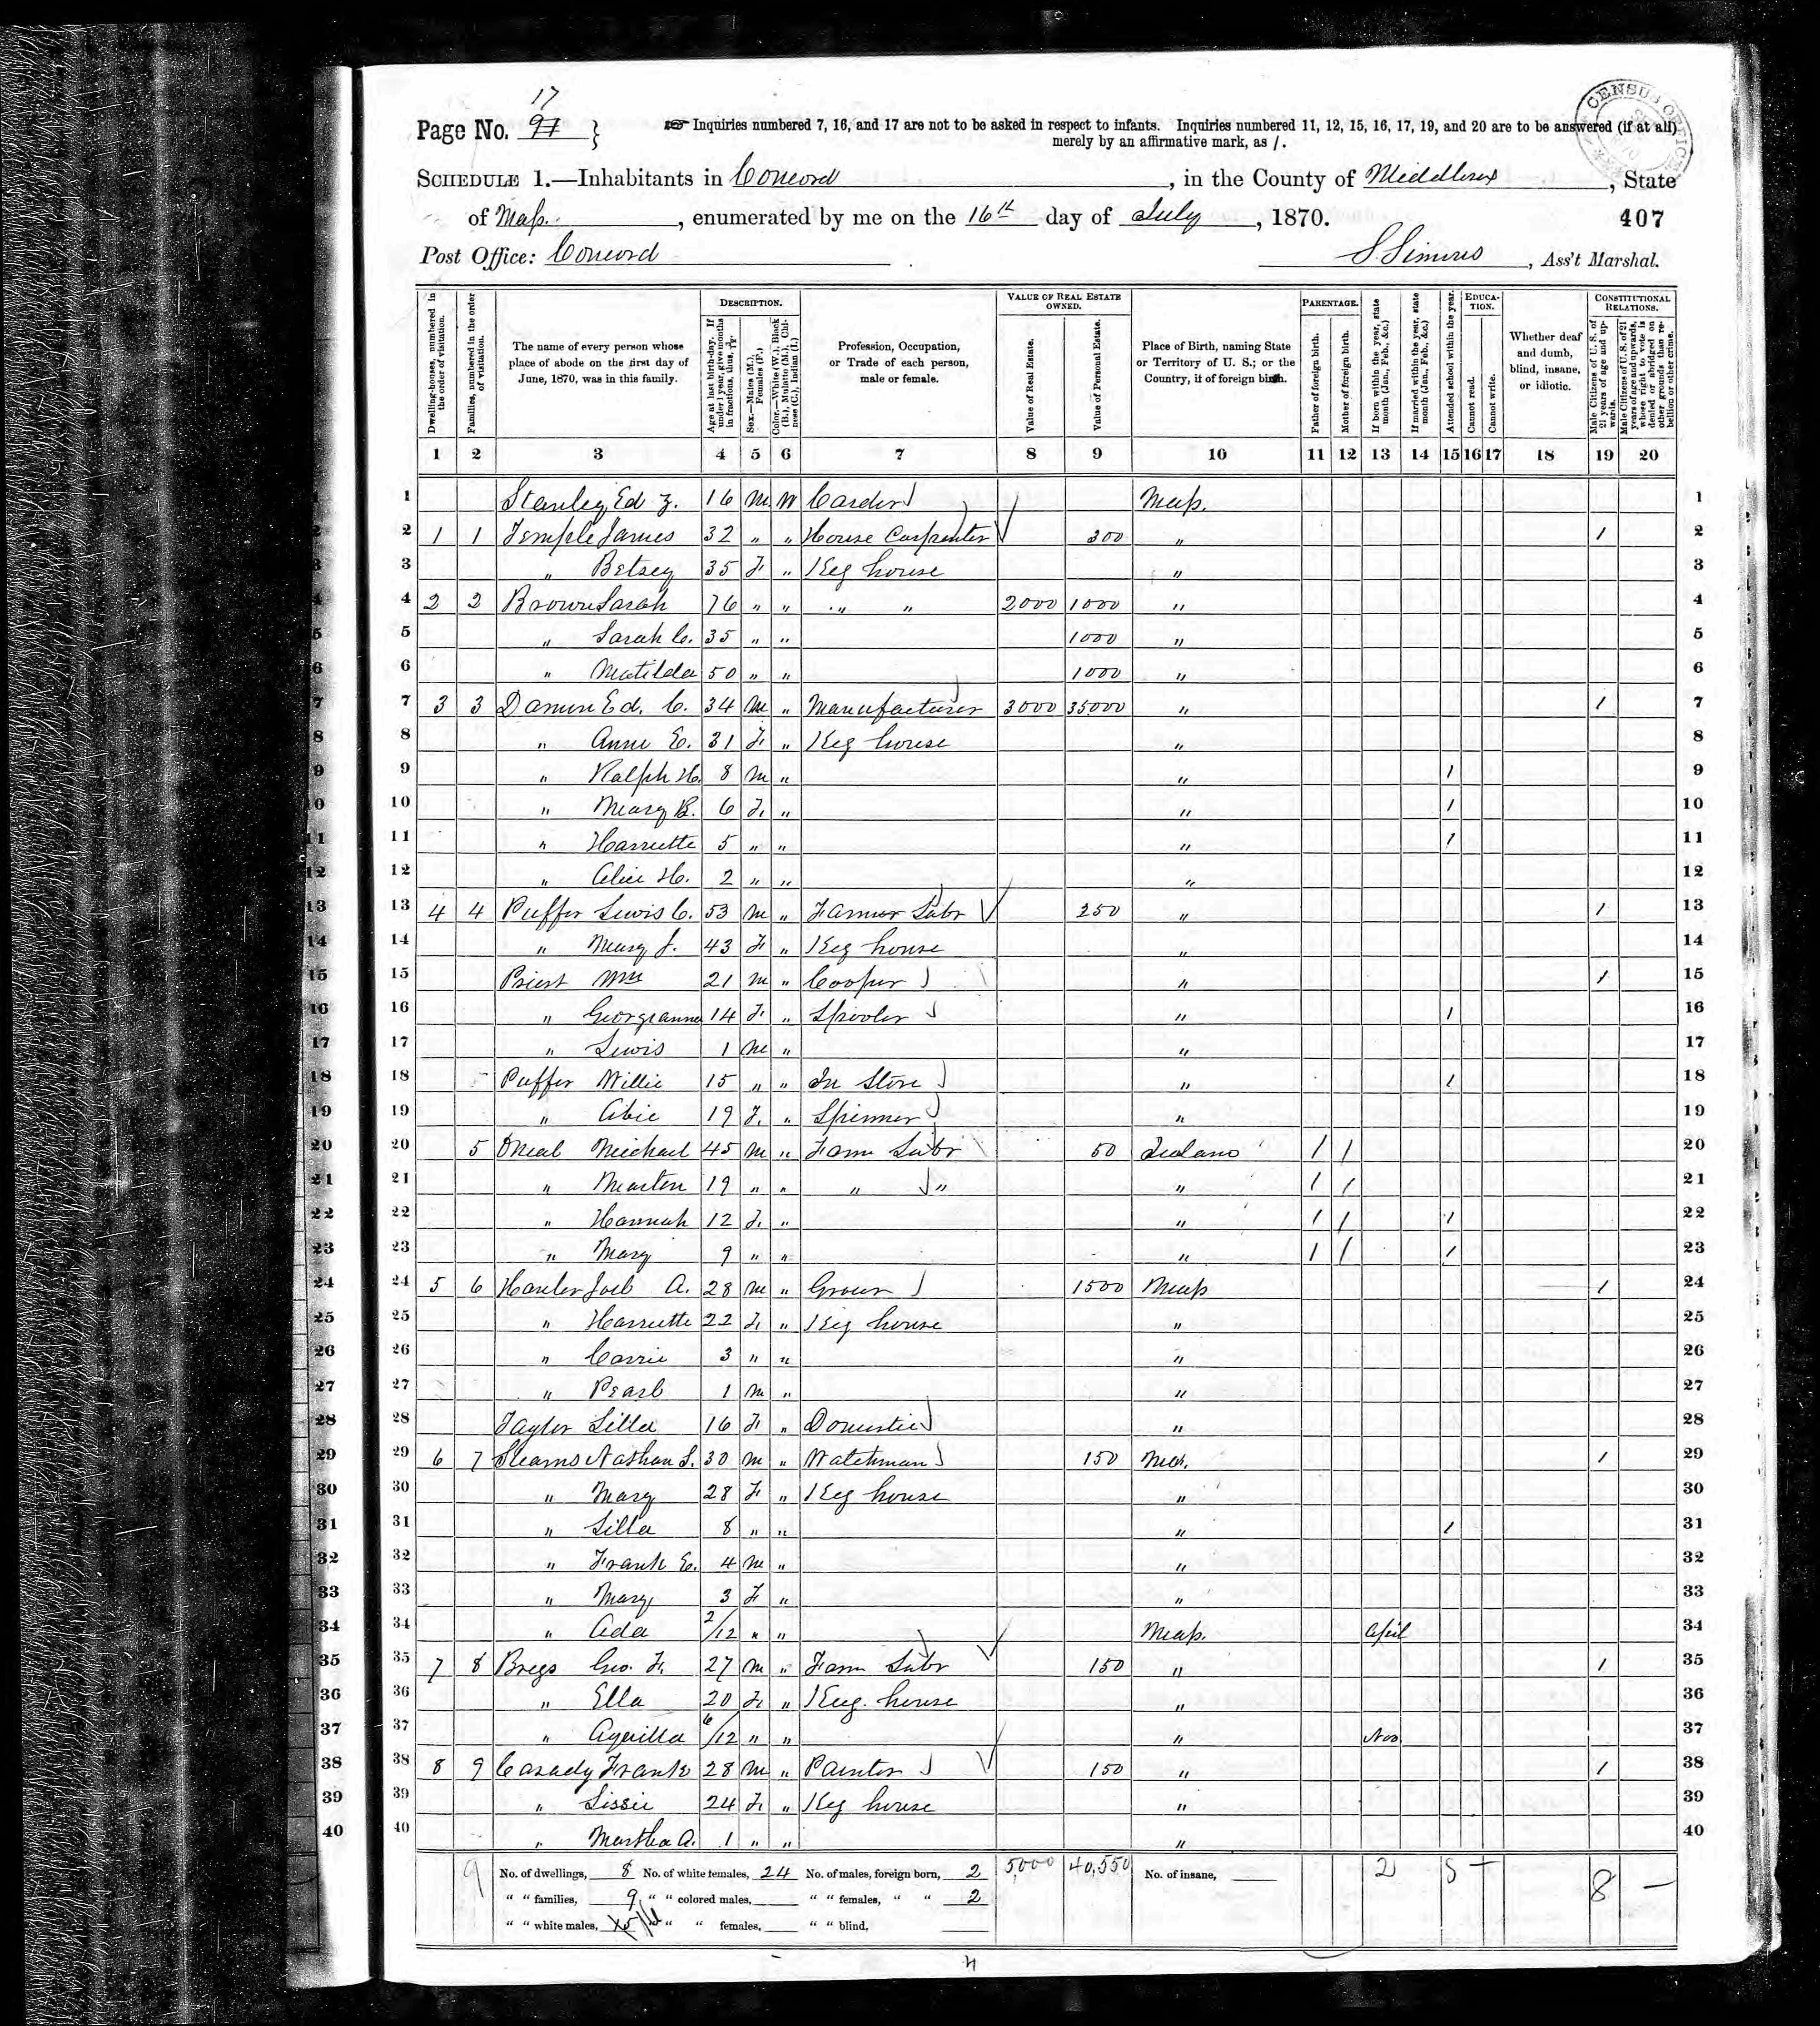 17
Page No. 97 }
Inquiries numbered 7, 16, and 17 are not to be asked in respect to infants. Inquiries numbered 11, 12, 15, 16, 17, 19, and 20 are to be answered (if at all)
merely by an affirmative mark, as /.
CENSUS OFFICE
SCHEDULE 1.—Inhabitants in Concord, in the County of Middlesex, State
of Mass., enumerated by me on the 16th day of July, 1870. 407
Post Office: Concord S. Simnes, Ass't Marshal.
Dwelling-houses, numbered in the order of visitation.
Families, numbered in the order of visitation.
The name of every person whose place of abode on the first day of June, 1870, was in this family.
DESCRIPTION.
Age at last birth-day. If under 1 year, give months in fractions, thus, 3/12.
Sex.—Males (M.), Females (F.)
Color.—White (W.), Black (B.), Mulatto (M.), Chinese (C.), Indian (I.)
Profession, Occupation, or Trade of each person, male or female.
VALUE OF REAL ESTATE OWNED.
Value of Real Estate.
Value of Personal Estate.
Place of Birth, naming State or Territory of U. S.; or the Country, if of foreign birth.
PARENTAGE.
Father of foreign birth.
Mother of foreign birth.
If born within the year, state month (Jan., Feb., &c.)
If married within the year, state month (Jan., Feb., &c.)
Attended school within the year.
EDUCATION.
Cannot read.
Cannot write.
Whether deaf and dumb, blind, insane, or idiotic.
CONSTITUTIONAL RELATIONS.
Male Citizens of U. S. of 21 years of age and upwards.
Male Citizens of U. S. of 21 years of age and upwards, whose right to vote is denied or abridged on other grounds than rebellion or other crime.
1 2 3 4 5 6 7 8 9 10 11 12 13 14 15 16 17 18 19 20
1 Stanley Ed Z. 16 M W Carder Mass. 1
2 1 1 Temple James 32 " " House Carpenter 300 " / 2
3 " Betsey 35 F " Keg house " 3
4 2 2 Brown Sarah 76 " " " " 2000 1000 " 4
5 " Sarah C. 35 " " 1000 " 5
6 " Matilda 50 " " 1000 " 6
7 3 3 Damon Ed. C. 34 M " Manufacturer 3000 35000 " / 7
8 " Anne E. 31 F " Keg house " 8
9 " Ralph H. 8 M " " / 9
10 " Mary B. 6 F " " / 10
11 " Harriette 5 " " " / 11
12 " Alice H. 2 " " " 12
13 4 4 Puffer Lewis C. 53 M " Farmer Labr 250 " / 13
14 " Mary J. 43 F " Keg house " 14
15 Priest Wm 21 M " Cooper " / 15
16 " Georgianna 14 F " Spooler " / 16
17 " Lewis 1 M " " 17
18 Puffer Willie 15 " " In Store " / 18
19 " Abie 19 F " Spinner " 19
20 5 Oneal Michael 45 M " Farm Labr 50 Ireland / / 20
21 " Marten 19 " " " " " / / 21
22 " Hannah 12 F " " / / / 22
23 " Mary 9 " " " / / / 23
24 5 6 Hauler Joel A. 28 M " Grocer 1500 Mass / 24
25 " Harriette 22 F " Keg house " 25
26 " Carrie 3 " " " 26
27 " Pearl 1 M " " 27
28 Taylor Lilla 16 F " Domestic " 28
29 6 7 Stearns Nathan S. 30 M " Watchman 150 Me. / 29
30 " Mary 28 F " Keg house " 30
31 " Lilla 8 " " " / 31
32 " Frank E. 4 M " " 32
33 " Mary 3 F " " 33
34 " Ada 2/12 " " Mass. April 34
35 7 8 Bregs Geo. F. 27 M " Farm Labr 150 " / 35
36 " Ella 20 F " Keeg. house " 36
37 " Aquilla 6/12 " " " Nov 37
38 8 9 Casady Frank 28 M " Painter 150 " / 38
39 " Lissie 24 F " Keg house " 39
40 " Martha A. 1 " " " 40
9 No. of dwellings, 8 No. of white females, 24 No. of males, foreign born, 2 5000 40,550 No. of insane, 2 8 —
" " families, 9 " " colored males, " " females, " " 2
" " white males, " " females, " " blind,